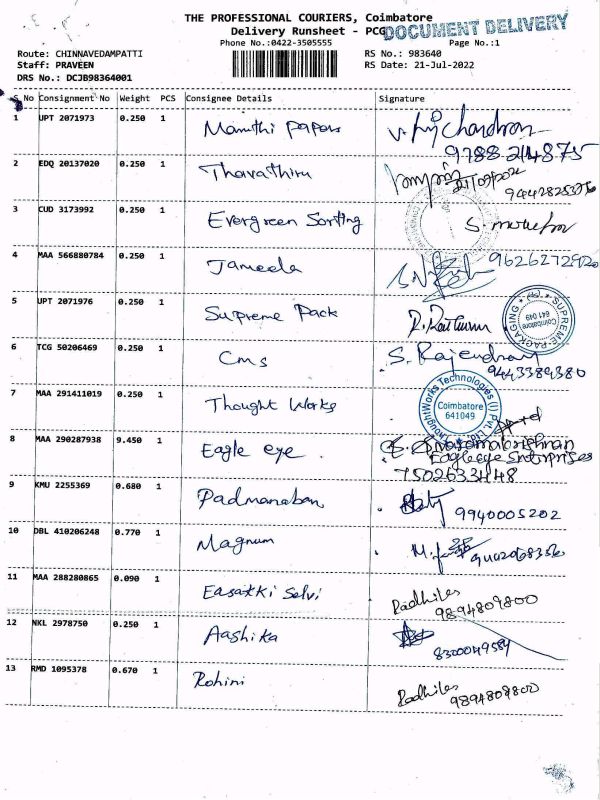 THE PROFESSIONAL COURIERS, Coimbatore
DOCUMENT DELIVERY
Delivery Runsheet - PCG
Phone No.:0422-3505555
Page No.:1
Route: CHINNAVEDAMPATTI
RS No.: 983640
Staff: PRAVEEN
RS Date: 21-Jul-2022
DRS No.: DCJB98364001
S No Consignment No Weight PCS Consignee Details Signature
1 UPT 2071973 0.250 1 Maruthi papers
9788214875
2 EDQ 20137020 0.250 1 Thavathiru
21/07/2022
9442825376
3 CUD 3173992 0.250 1 Evergreen Sorting
4 MAA 566880784 0.250 1 Jameela 9626272920
5 UPT 2071976 0.250 1 Supreme Pack
SUPREME PACKAGING Coimbatore 641 049
6 TCG 50206469 0.250 1 Cms S. Rajendran
9443389380
7 MAA 291411019 0.250 1 Thought Works
ThoughtWorks Technologies (I) Pvt. Ltd. Coimbatore 641049
8 MAA 290287938 9.450 1 Eagle eye
Eagleeye Enterprises
7502633448
9 KMU 2255369 0.680 1 Padmanaban
9940005202
10 DBL 410206248 0.770 1 Magnum
11 MAA 288280865 0.090 1 Easakki Selvi Radhika
9894809800
12 NKL 2978750 0.250 1 Aashika
8300049584
13 RMD 1095378 0.670 1 Rohini Radhika
9894809800